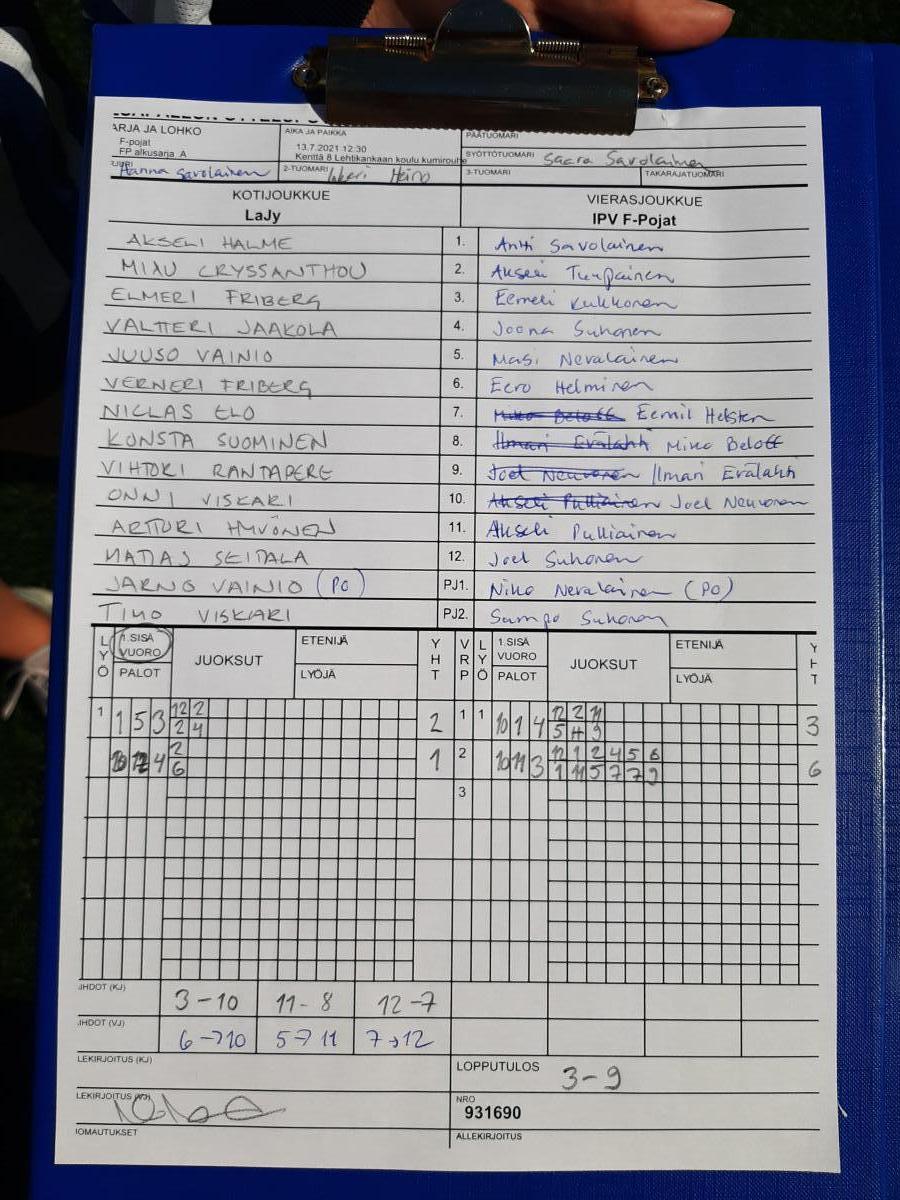 ARJA JA LOHKO
F-pojat
FP alkusarja A
AIKA JA PAIKKA
13.7.2021 12:30
Kenttä 8 Lehtikankaan koulu kumirouhe
PÄÄTUOMARI
SYÖTTÖTUOMARI Saara Savolainen
Hanna Savolainen 2-TUOMARI Heino 3-TUOMARI TAKARAJATUOMARI
KOTIJOUKKUE VIERASJOUKKUE
LaJy IPV F-Pojat
AKSELI HALME 1. Antti Savolainen
MIXU CRYSSANTHOU 2. Akseli Turpainen
ELMERI FRIBERG 3. Eemeli Kukkonen
VALTTERI JAAKOLA 4. Joona Suhonen
JUUSO VAINIO 5. Masi Nevalainen
VERNERI FRIBERG 6. Eero Helminen
NICLAS ELO 7. Miko Beloff Eemil Helsten
KONSTA SUOMINEN 8. Ilmari Erälahti Miko Beloff
VIHTORI RANTAPERE 9. Joel Neuvonen Ilmari Erälahti
ONNI VISKARI 10. Akseli Pulliainen Joel Neuvonen
ARTTURI HYVÖNEN 11. Akseli Pulliainen
MATIAS SEITALA 12. Joel Suhonen
JARNO VAINIO (PO) PJ1. Niko Nevalainen (PO)
TIMO VISKARI PJ2. Sampo Suhonen
LYÖ 1.SISÄ VUORO PALOT JUOKSUT ETENIJÄ LYÖJÄ YHT VRP LYÖ 1.SISÄ VUORO PALOT JUOKSUT ETENIJÄ LYÖJÄ YHT
1 1 5 3 12 2 2 1 1 10 1 4 12 2 11 3
2 4 5 4 9
4 2 1 2 10 11 3 12 1 2 4 5 6 6
6 1 11 5 7 7 9
3
IHDOT (KJ) 3-10 11-8 12-7
IHDOT (VJ) 6→10 5→11 7→12
LEKIRJOITUS (KJ) LOPPUTULOS 3-9
LEKIRJOITUS (VJ) NRO
931690
IOMAUTUKSET ALLEKIRJOITUS